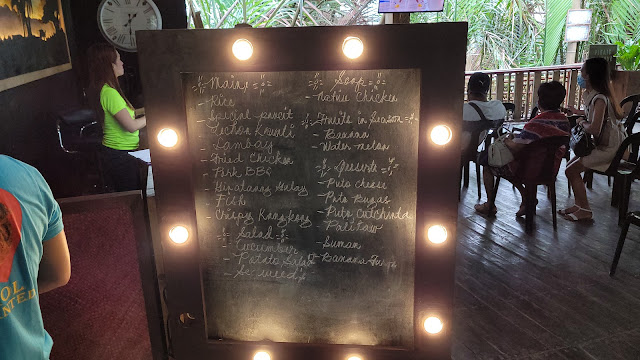 Main
- Rice
- Special pancit
- Lechon Kawali
- Lambay
- Fried Chicken
- Pork BBQ
- Ginataang Gulay
- Fish
- Crispy Kangkong
Salad
- Cucumber
- Potato Salad
- Se weed's
Soup
- Native Chicken
Fruits in Season
- Banana
- Water melon
Desserts
- Puto cheese
- Puto Bugas
- Puto Cutchinta
- Palitaw
- Suman
- Banana
OL